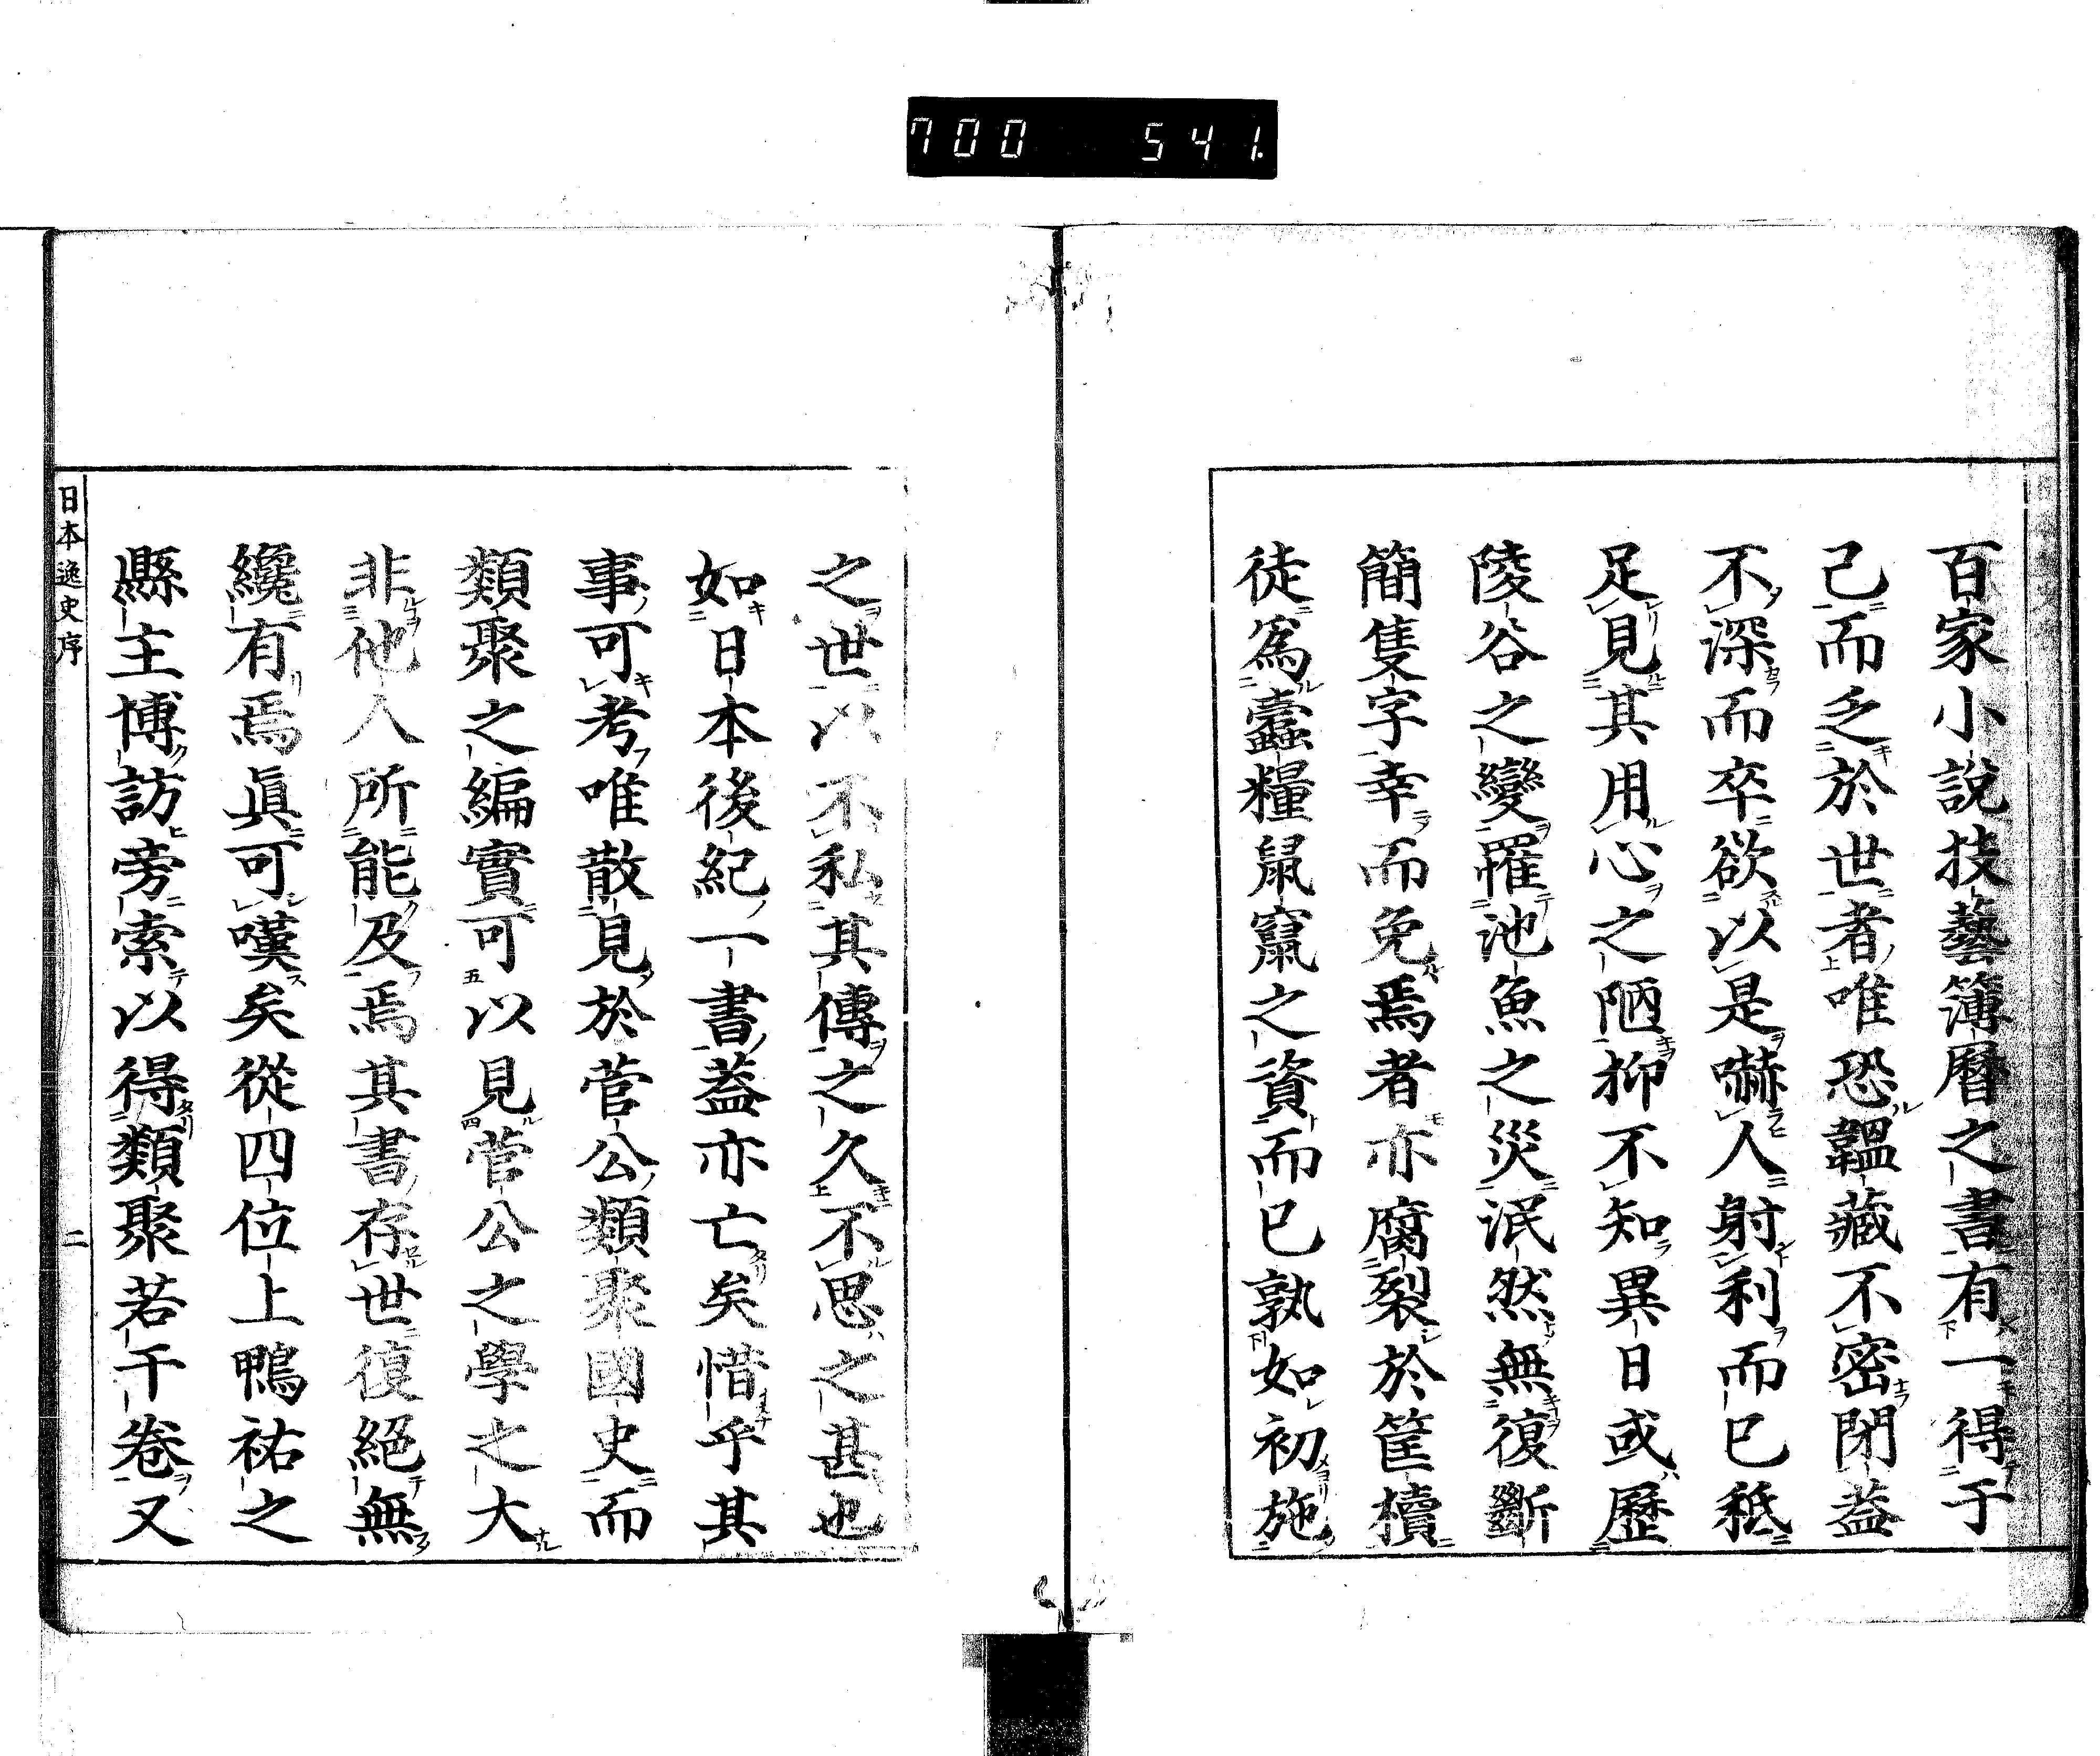 700 541.
百家小說技藝簿曆之書有一得于
己而乏於世者唯恐韞藏不密閉葢
不深而卒欲以是嚇人射利而已秪
足見其用心之陋抑不知異日或歷
陵谷之變罹池魚之災泯然無復斷
簡隻字幸而免焉者亦腐裂於筐櫝
徒爲蠹糧鼠窠之資而已孰如初施
之世以不私其傳之久不思之甚也
如日本後紀一書葢亦亡矣惜乎其
事可考唯散見於菅公類聚國史而
類聚之編實可以見菅公之學之大
非他人所能及焉其書存世復絕無
纔有焉眞可嘆矣從四位上鴨祐之
縣主博訪旁索以得類聚若干卷又
日本逸史序 二